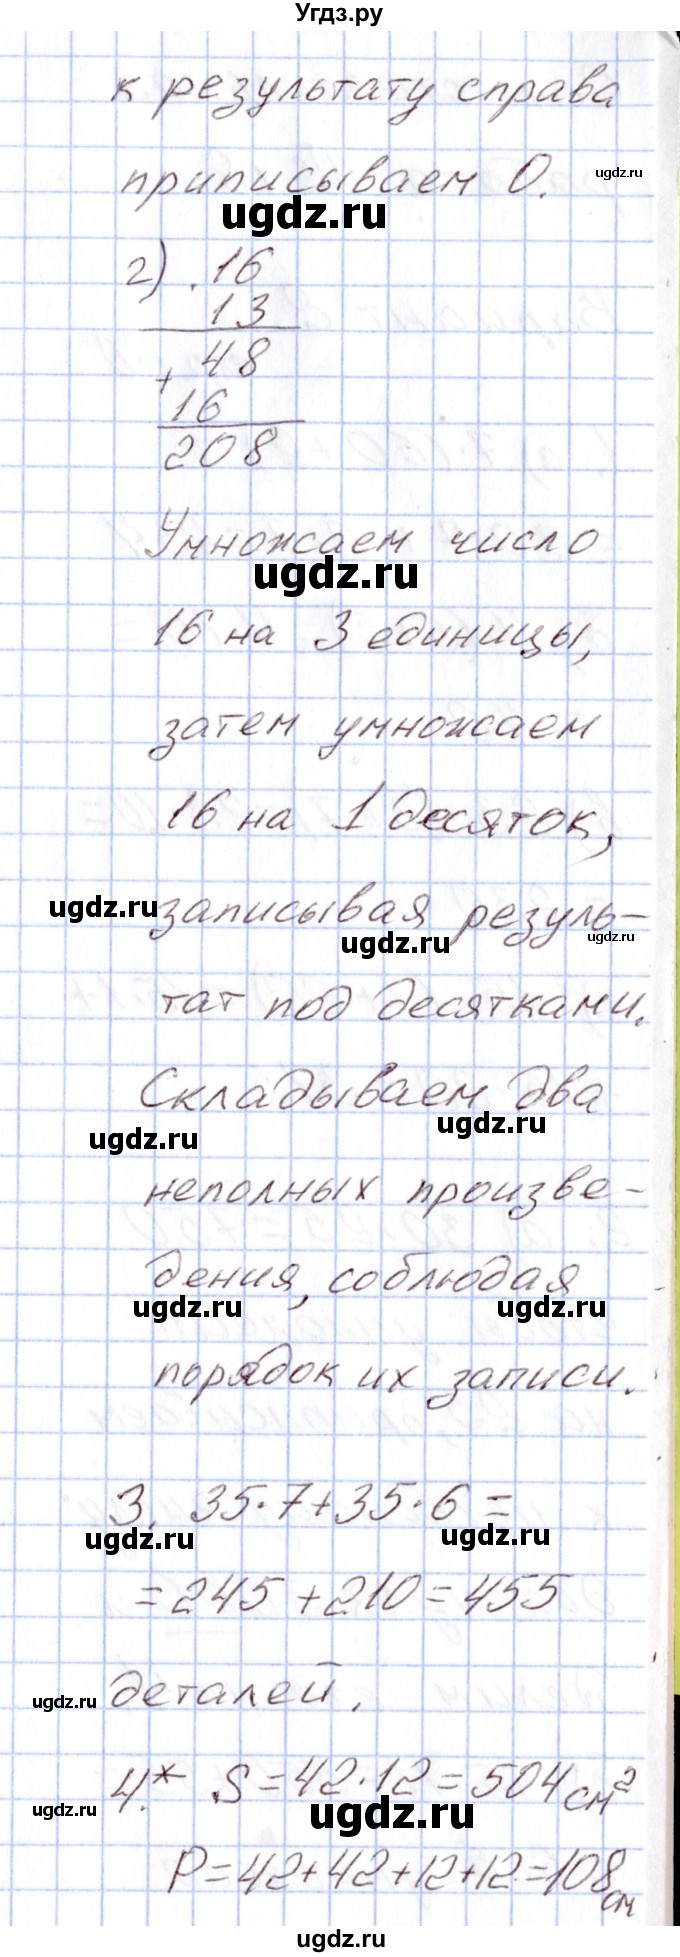 Угдз.ру
к результату справа
приписываем 0.
ugdz.ru
ugdz.ru
2) . 16
13
48
+
16
208
Умножаем число
ugdz.ru
16 на 3 единицы,
затем умножаем
16 на 1 десяток,
ugdz.ru
записывая резуль-
ugdz.ru
ugdz.ru
тат под десятками.
Складываем два
ugdz.ru
ugdz.ru
неполных произве-
дения, соблюдая
ugdz.ru
ugdz.ru
порядок их записи.
3. 35·7+35·6=
ugdz.ru
ugdz.ru
=245+210=455
деталей.
ugdz.ru
4.* S=42·12=504см²
ugdz.ru
ugdz.ru
P=42+42+12+12=108см
ugdz.ru